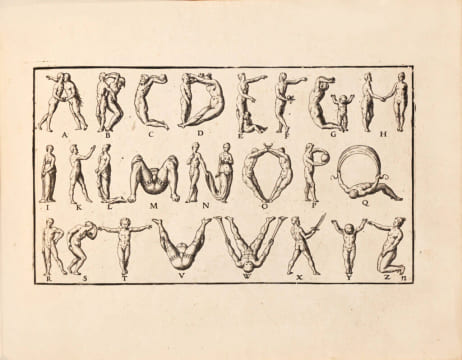 A B C D E F G H
I K L M N O P Q
R S T V W X Y Z n